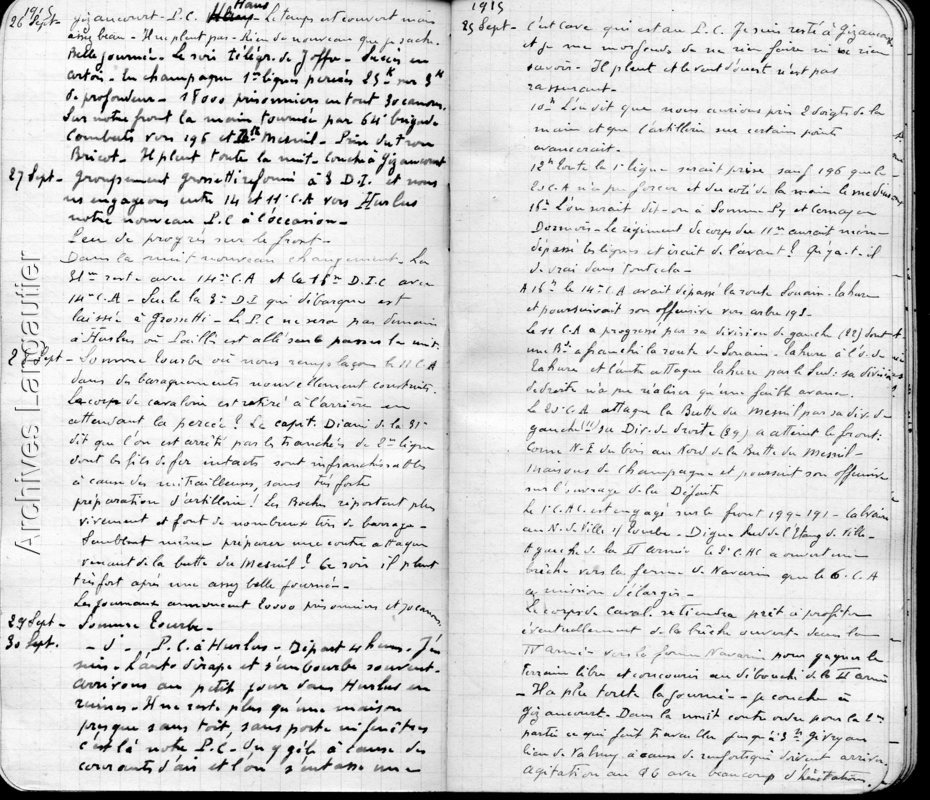 1915
26 Sept - Gizaucourt - P.C. Hans - Le temps est couvert mais
assez beau - Il ne pleut pas - Rien de nouveau que je sache.
Belle journée - Le soir télégr. de Joffre - Succès en
Artois - En Champagne 1ère ligne percée 25k sur 3k
de profondeur - 18000 prisonniers en tout 30 canons.
Sur notre front la main tournée par 64e brigade
Combats vers 196 et Mesnil - Prise du trou
Bricot - Il pleut toute la nuit - Couché à Gizaucourt
27 Sept - Groupement Grossetti reformé à 3 D.I. et nous
engageons entre 14 et 11e C.A vers Hurlus
notre nouveau P.C à l'occasion -
Peu de progrès sur le front -
Dans la nuit nouveau changement - La
31me reste avec 14me C.A et la 15me D.I.C avec
14me C.A - Seule la 8e D.I qui débarque est
laissée à Grossetti - Le P.C ne sera pas demain
à Hurlus où est allé passer la nuit.
28 Sept - Somme Tourbe où nous remplaçons le 11 C.A
dans des baraquements nouvellement construits.
Le corps de cavalerie est retiré à l'arrière en
attendant la percée ? Le capit. de la 31e
dit que l'on est arrêté par les tranchées de 2me ligne
dont les fils de fer intacts sont infranchissables
à cause des mitrailleuses, sans très forte
préparation d'artillerie ! Les Boches ripostent plus
vivement et font de nombreux tirs de barrage -
Semblent même préparer une contre attaque
venant de la butte du Mesnil ? Ce soir il pleut
très fort après une assez belle journée -
Les journaux annoncent 20000 prisonniers et 70 canons,
29 Sept - Somme Tourbe -
30 Sept. - d° - P.C. à Hurlus - Départ 4 heures - J'en
suis - L'auto dérape et s'embourbe souvent -
arrivons au petit jour dans Hurlus en
ruines - Il ne reste plus qu'une maison
presque sans toit, sans porte ni fenêtres
c'est là notre P.C - On y gèle à cause des
courants d'air et l'on s'entasse une
1915
25 Sept - c'est Cave qui est au P.C. Je suis resté à Gizaucourt
et je me morfonds de ne rien faire ni de rien
savoir - Il pleut et le vent d'ouest n'est pas
rassurant -
10h L'on dit que nous aurions pris 2 doigts de la
main et que l'artillerie sur certains points
avancerait -
12h Toute la 1e ligne serait prise sauf 196 que le
20 C.A n'a pu forcer et du côté de la main le
15h L'on serait dit-on à Somme Py et Cernay en
Dormois - Le régiment de corps du 11me aurait même
dépassé les lignes et irait de l'avant ! Qu'y a-t-il
de vrai dans tout cela -
A 16h le 14e C.A avait dépassé la route Souain - Tahure
et poursuivait son offensive vers arbre 193 -
Le 11 C.A a progressé par sa division de gauche (22) dont
une Bde a franchi la route de Souain - Tahure à l'O. de
Tahure et l'autre attaque Tahure par le Sud : sa division
de droite n'a pu réaliser qu'une faible avance.
Le 20 C.A attaque la Butte du Mesnil par sa div. de
gauche (11) sa Div. de droite (39) a atteint le front :
Corne N-E du bois au Nord de la Butte du Mesnil -
Maisons de Champagne et poursuit son offensive
sur l'ouvrage de la Défaite
Le 1e C.A.C. est engagé sur le front 199-191 - Calvaire
au N. de Ville s/ Tourbe - Digue Sud de l'Etang de Ville -
A gauche de la II Armée le 2e C.A.C a ouvert une
brèche vers la ferme de Navarin que le 6e C.A
a mission d'élargir -
Le corps de Caval. se tiendra prêt à profiter
éventuellement de la brèche ouverte dans la
IV Armée vers la ferme Navarin pour gagner le
terrain libre et concourir au débouché de la II Armée
- Il a plu toute la journée - Je couche à
Gizaucourt - Dans la nuit contre ordre pour la 2me
partie ce qui fait travailler jusqu'à 3h Givry au
lieu de Valmy à cause de renforts qui doivent arriver.
agitation au QG avec beaucoup d'hésitations.
Archives Langautier